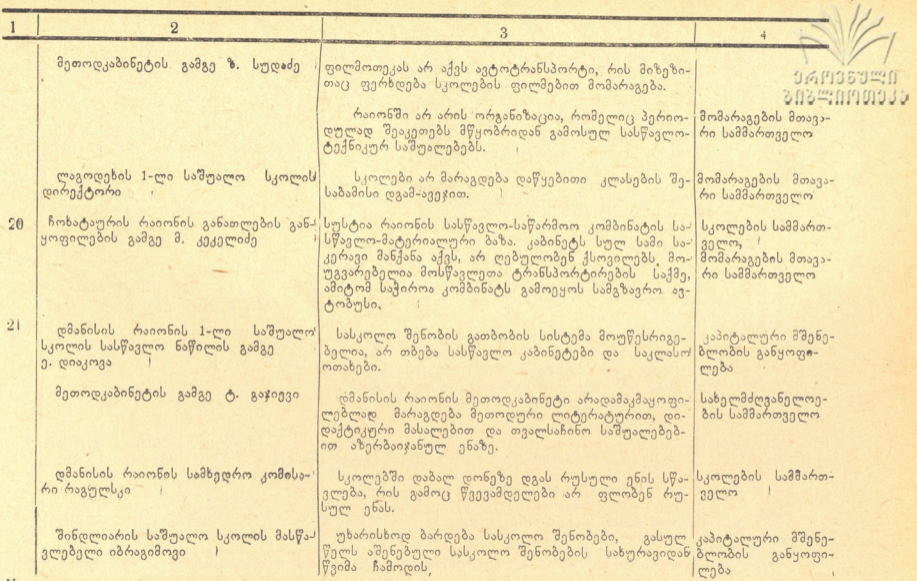 1 2 3 4
ეროვნული
ბიბლიოთეკა
მეთოდკაბინეტის გამგე ზ. სუდაძე
ფილმოთეკას არ აქვს ავტოტრანსპორტი, რის მიზეზი-
თაც ფერხდება სკოლების ფილმებით მომარაგება.
რაიონში არ არის ორგანიზაცია, რომელიც პერიო-
დულად შეაკეთებს მწყობრიდან გამოსულ სასწავლო-
ტექნიკურ საშუალებებს.
მომარაგების მთავა-
რი სამმართველო
ლაგოდეხის 1-ლი საშუალო სკოლის
დირექტორი
სკოლები არ მარაგდება დაწყებითი კლასების შე-
საბამისი დგამ-ავეჯით.
მომარაგების მთავა-
რი სამმართველო
20
ჩოხატაურის რაიონის განათლების გან-
ყოფილების გამგე მ. კეკელიძე
სუსტია რაიონის სასწავლო-საწარმოო კომბინატის სა-
სწავლო-მატერიალური ბაზა. კაბინეტს სულ სამი სა-
კერავი მანქანა აქვს, არ ღებულობენ ქსოვილებს, მო-
უგვარებელია მოსწავლეთა ტრანსპორტირების საქმე,
ამიტომ საჭიროა კომბინატს გამოეყოს სამგზავრო ავ-
ტობუსი.
სკოლების სამმართ-
ველო,
მომარაგების მთავა-
რი სამმართველო
21
დმანისის რაიონის 1-ლი საშუალო
სკოლის სასწავლო ნაწილის გამგე
ე. დიაკოვა
სასკოლო შენობის გათბობის სისტემა მოუწესრიგე-
ბელია, არ თბება სასწავლო კაბინეტები და საკლასო
ოთახები.
კაპიტალური მშენე-
ბლობის განყოფი-
ლება
მეთოდკაბინეტის გამგე ტ. გაჯიევი
დმანისის რაიონის მეთოდკაბინეტი არადამაკმაყოფი-
ლებლად მარაგდება მეთოდური ლიტერატურით, დი-
დაქტიკური მასალებით და თვალსაჩინო საშუალებებ-
ით აზერბაიჯანულ ენაზე.
სახელმძღვანელოე-
ბის სამმართველო
დმანისის რაიონის სამხედრო კომისა-
რი რაგულსკი
სკოლებში დაბალ დონეზე დგას რუსული ენის სწა-
ვლება, რის გამოც წვევამდელები არ ფლობენ რუ-
სულ ენას.
სკოლების სამმართ-
ველო
შინდლიარის საშუალო სკოლის მასწა-
ვლებელი იბრაგიმოვი
უხარისხოდ ბარდება სასკოლო შენობები, გასულ
წელს აშენებული სასკოლო შენობების სახურავიდან
წვიმა ჩამოდის,
კაპიტალური მშენე-
ბლობის განყოფი-
ლება